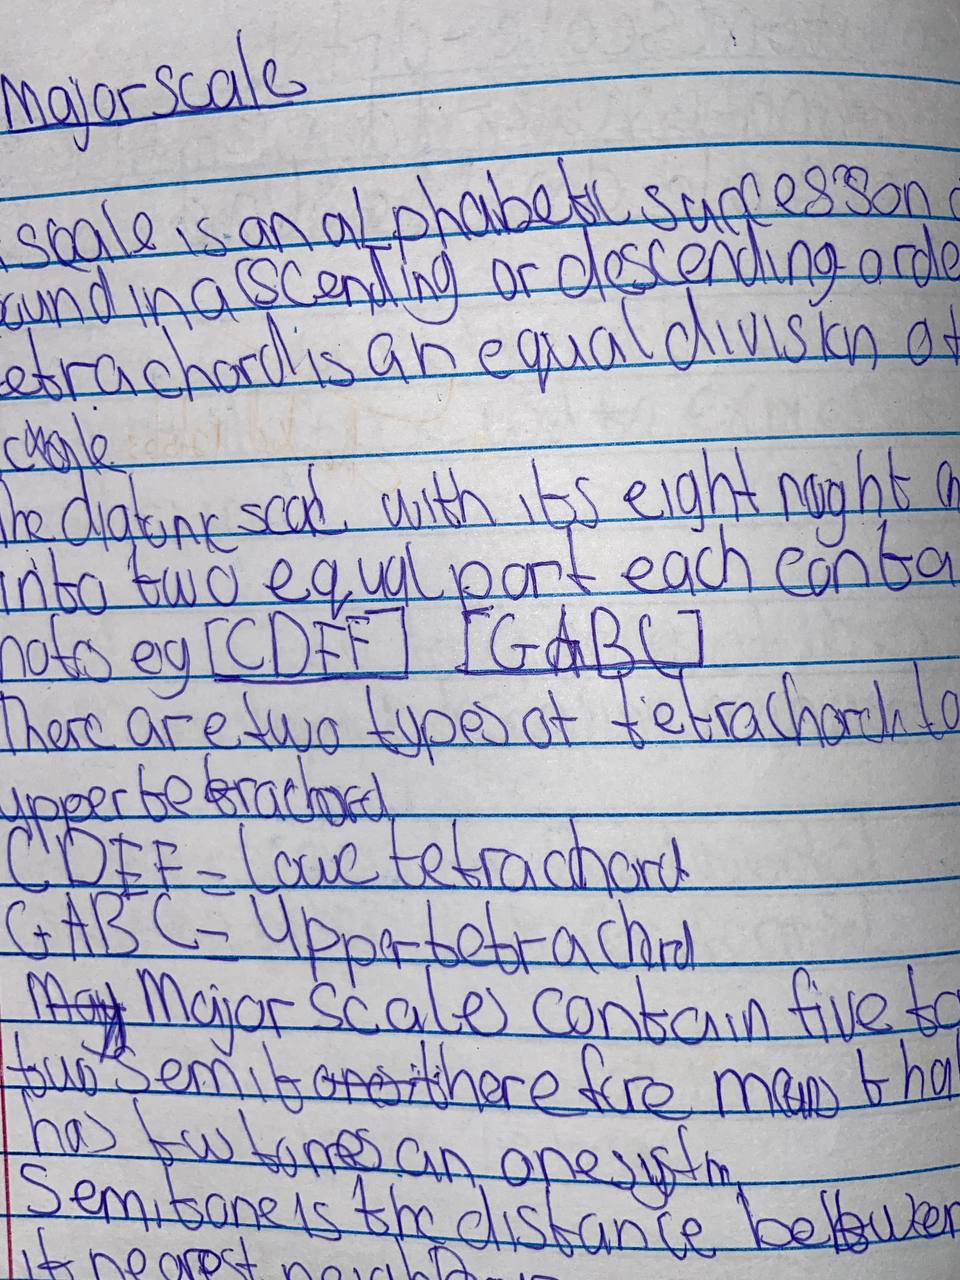 Major scale
scale is an alphabetic successon
ound in ascending or descending orde
etrachord is an equal division of
scale
he diatonic scal with its eight nought
into two equal part each conta
notes eg [CDEF] [GABC]
There are two types of tetrachord lo
upper tetrachord
CDEF = Lowe tetrachord
GABC = Upper tetrachord
May Major scales contain five to
two semitones therefore means tha
has two tones an one
Semitone is the distance between
it nearest neighb